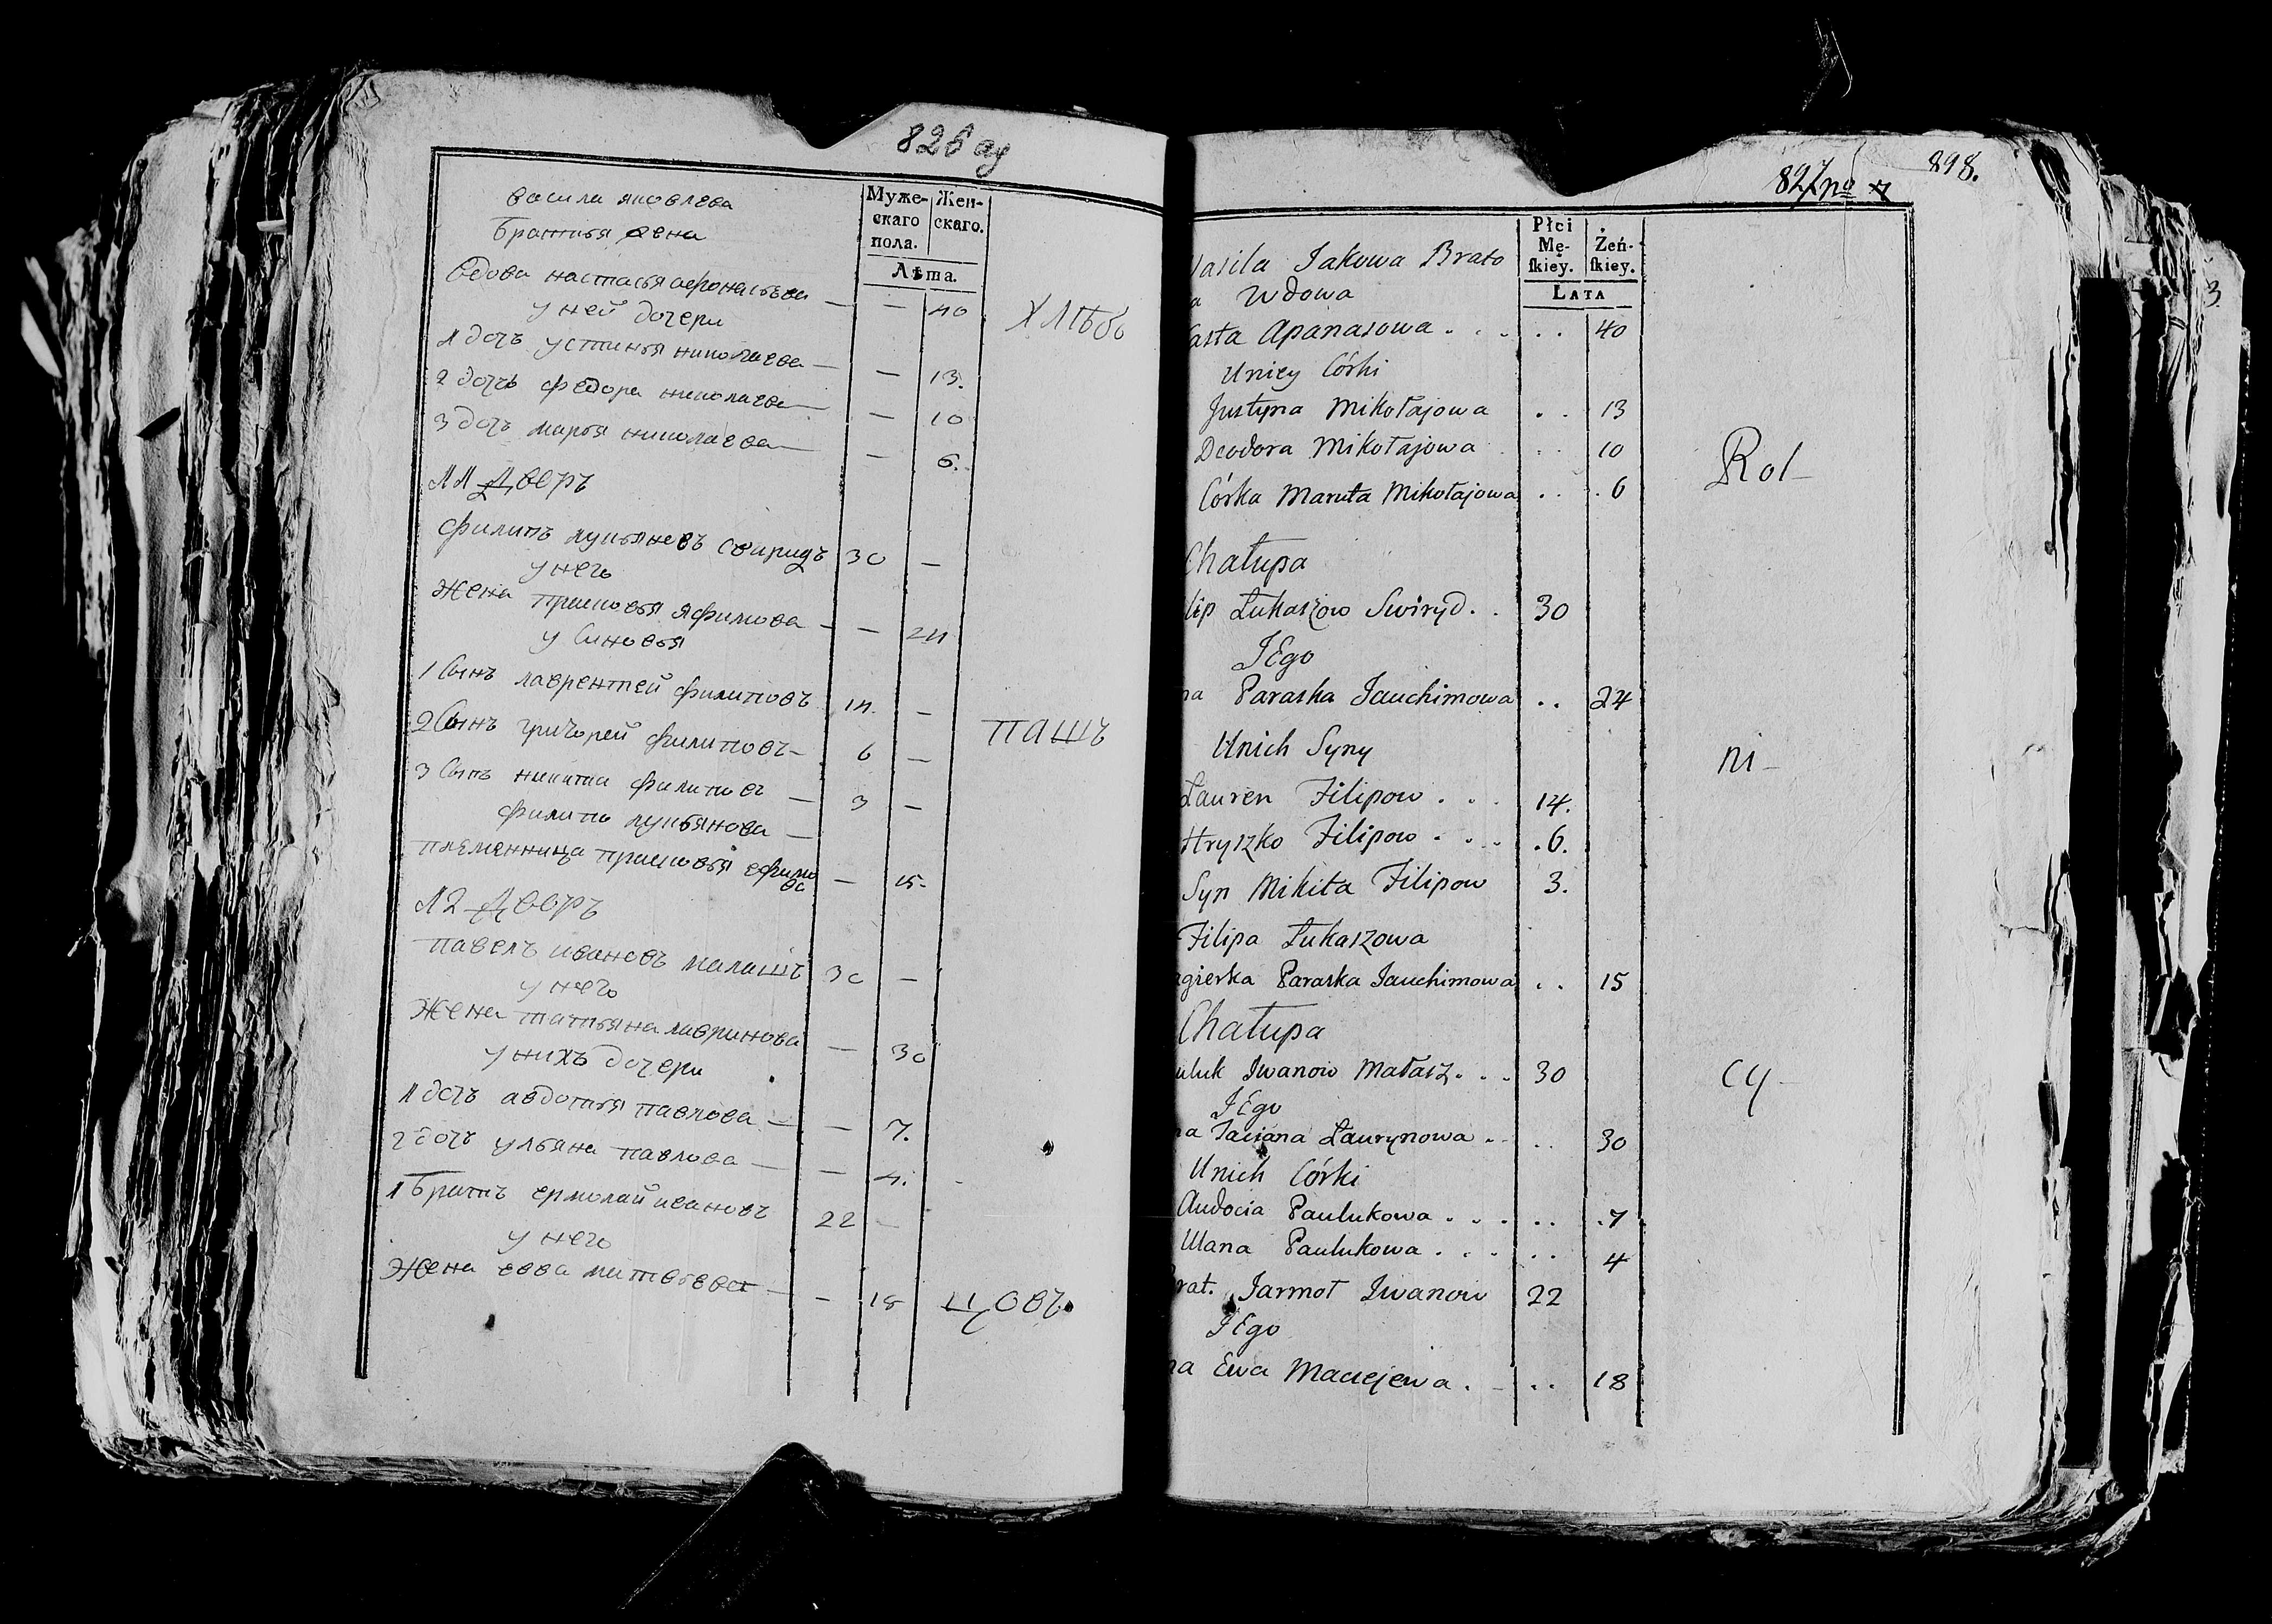 826 об
Муже-
скаго
пола.
Жен-
скаго.
Лѣта.
василя яковлева
братья жена
вдова настасья афонасьева — — 40
у ней дочери
1 дочь устинья николаева — — 13.
2 дочь федора николаева — — 10
3 дочь марья николаева — — 6.
11 Дворъ
филипъ лукьяновъ свиридъ 30 —
у него
жена прасковья яфимова — — 24
у Сыновья
1 Сынъ лаврентей филиповъ 14. —
2 Сынъ григорей филиповъ — 6 —
3 Сынъ никита филиповъ — 3 —
филипа лукьянова —
племенница прасковья ефимова — 15.
12 Дворъ
павелъ ивановъ малашъ 30 —
у него
жена татьяна лавринова — 30
у нихъ дочери
1 дочь авдотья павлова — — 7.
2 дочь ульяна павлова — — 4.
1 братъ ермолай ивановъ 22 —
у него
Жена евва матвеева — — 18
хлѣбо
пашъ
цовъ
827 898.
Płci
Mę-
skiey.
Żeń-
skiey.
LATA
Wasila Jakowa Brato
a Wdowa
asta Apanasowa . . . . . 40
Uniey Córki
Justyna Mikołajowa . . 13
Deodora Mikołajowa . . . 10
Córka Maruta Mikołajowa . . . 6
Chałupa
lip Łukaszow Swiryd . . 30
JEgo
na Paraska Jauchimowa . . 24
Unich Syny
Łauren Filipow . . . 14.
Hryszko Filipow . . . . 6.
Syn Mikita Filipow 3.
Filipa Łukaszowa
gierka Paraska Jauchimowa . . 15
Chałupa
uluk Iwanow Małasz . . . 30
JEgo
na Taciana Łaurynowa . . . . 30
Unich Córki
Audocia Paulukowa . . . . . . 7
Ulana Paulukowa . . . . . 4
rat. Jarmoł Iwanow 22
JEgo
na Ewa Maciejewa . . . 18
Rol-
ni-
cy-
3.